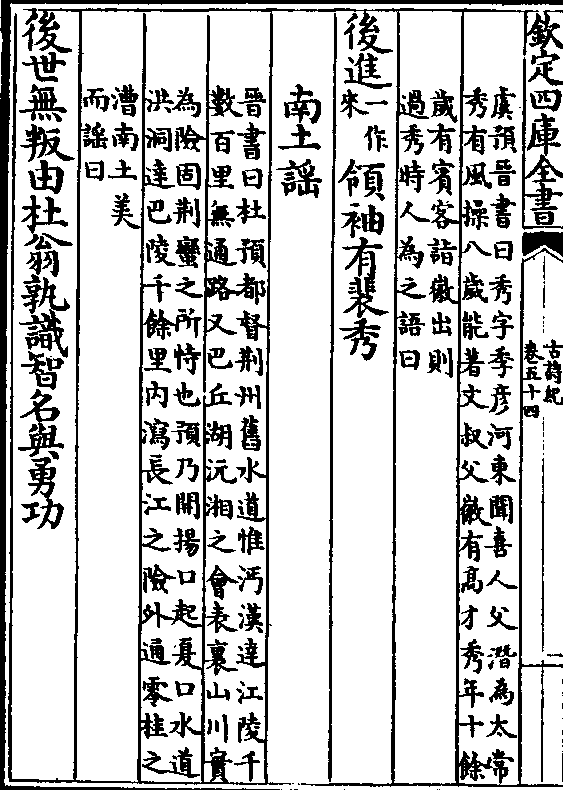 欽定四庫全書
古詩紀
卷五十四
二
虞預晉書曰秀字季彦河東聞喜人父潛為太常
秀有風操八歲能著文叔父徽有髙才秀年十餘
歲有賓客詣徽出則
過秀時人為之語曰
後進一作來領袖有裴秀
南土謡
晉書曰杜預都督荆州舊水道惟沔漢達江陵千
數百里無通路又巴丘湖沅湘之會表裏山川實
為險固荆蠻之所恃也預乃開揚口起夏口水道
洪洞達巴陵千餘里内瀉長江之險外通零桂之
漕南土美
而謡曰
後世無叛由杜翁孰識智名與勇功